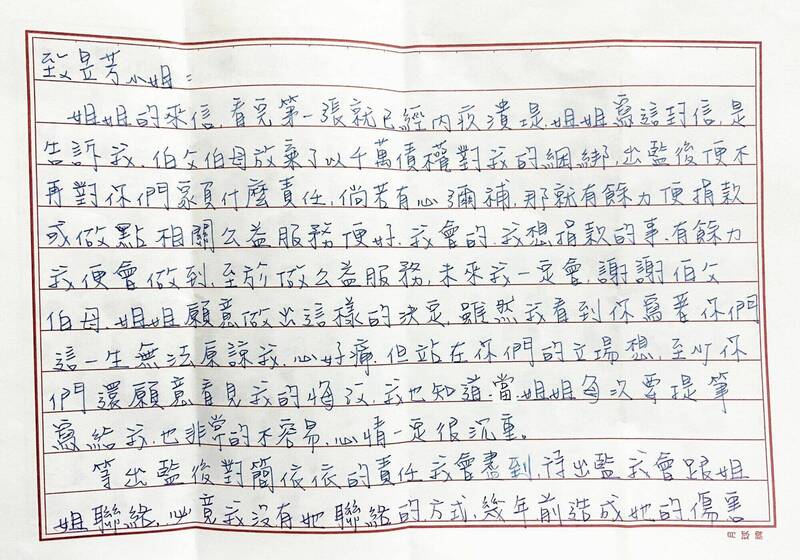 致昱芳小姐：
姐姐的來信，看見第一張就已經內疚潰堤，姐姐寫這封信，是
告訴我，伯父伯母放棄了以千萬債權對我的綑綁，出監後便不
再對你們豪負什麼責任，倘若有心彌補，那就有餘力便捐款
或做點相關公益服務便好，我會的，我想捐款的事，有餘力
我便會做到，至於做公益服務，未來我一定會，謝謝伯父
伯母、姐姐願意做出這樣的決定，雖然我看到你寫著你們
這一生無法原諒我，心好痛，但站在你們的立場想，至少你
們還願意看見我的悔改，我也知道，當姐姐每次要提筆
寫給我，也非常的不容易，心情一定很沉重。
等出監後對簡依依的責任我會盡到，待出監我會跟姐
姐聯絡，必竟我沒有她聯絡的方式，幾年前造成她的傷害